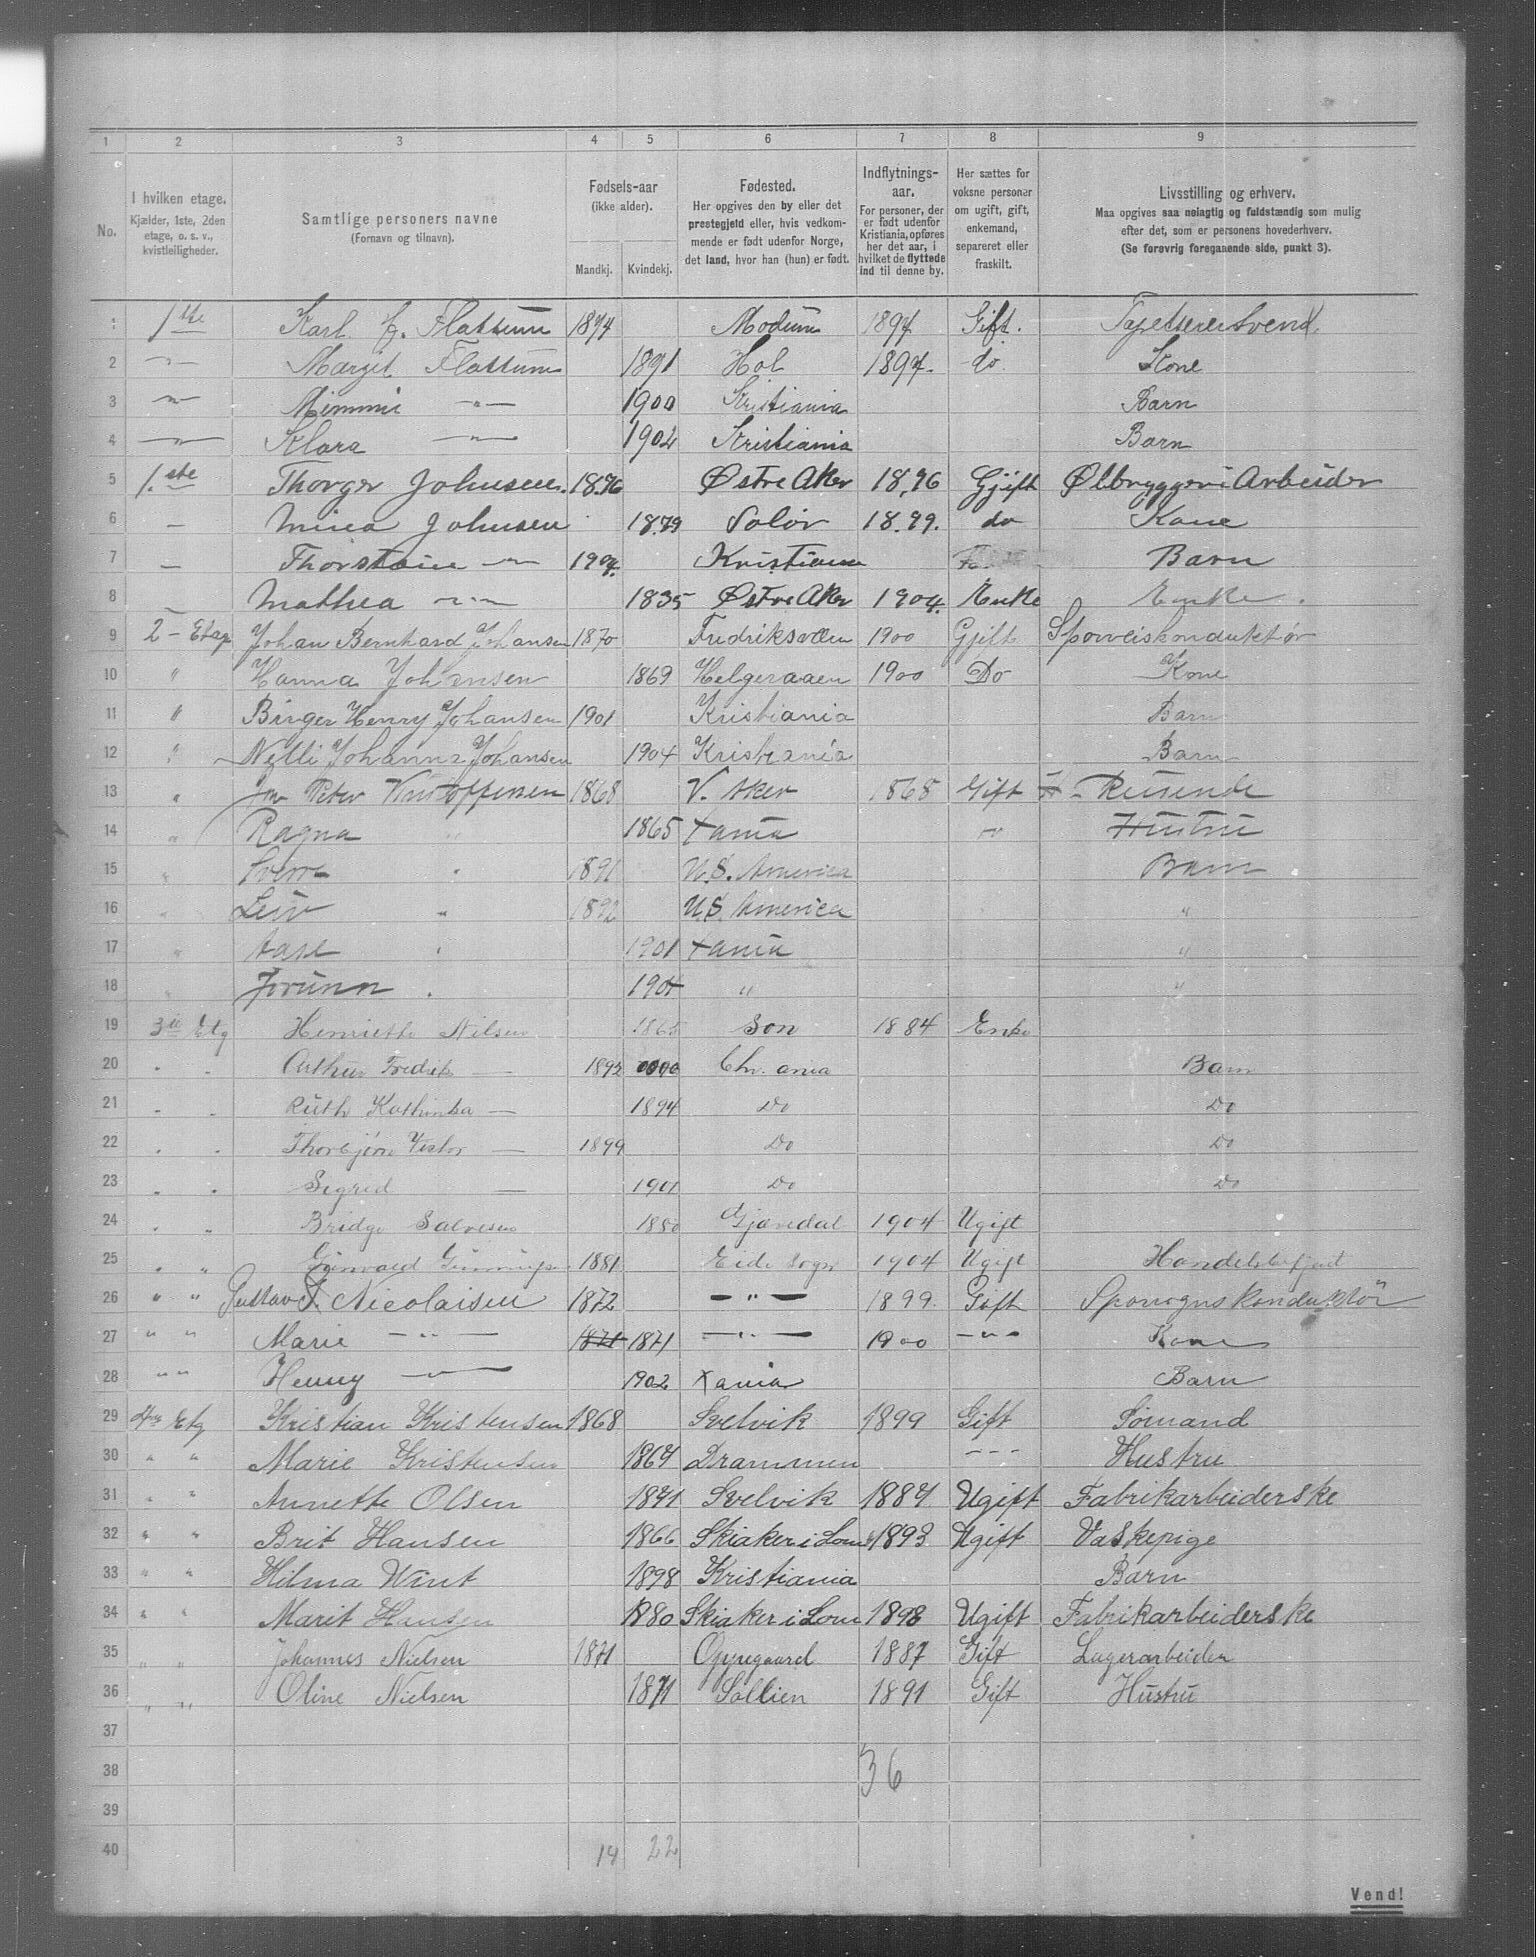 1 2 3 4 5 6 7 8 9
No.
I hvilken etage.
Kjælder, 1ste, 2den
etage, o. s. v.,
kvistleiligheder.
Samtlige personers navne
(Fornavn og tilnavn).
Fødsels-aar
(ikke alder).
Mandkj. Kvindekj.
Fødested.
Her opgives den by eller det
prestegjeld eller, hvis vedkom-
mende er født udenfor Norge,
det land, hvor han (hun) er født.
Indflytnings-
aar.
For personer, der
er født udenfor
Kristiania, opføres
her det aar, i
hvilket de flyttede
ind til denne by.
Her sættes for
voksne personer
om ugift, gift,
enkemand,
separeret eller
fraskilt.
Livsstilling og erhverv.
Maa opgives saa nøiagtig og fuldstændig som mulig
efter det, som er personens hovederhverv.
(Se forøvrig foregaaende side, punkt 3).
1 1ste Karl Flattum 1874 Modum 1897 Gift. Tapetserersvend
2 " Margit Flattum 1871 Hol 1897. do. Kone
3 " Mimmi " 1900 Kristiania Barn
4 " Klara " 1902 Kristiania Barn
5 1.ste Thorger Johnsen. 1876 Østre Aker 1896 Gjift Ølbryggeri Arbeider
6 — Minea Johnsen 1879 Solør 1899. do Kone
7 — Thorstein — " — Kristiania Barn
8 — Mathea — " — 1835 Østre Aker 1904. Enke Enke.
9 2 - Etage Johan Bernhard Johansen 1870 Fredriksværn 1900 Gjift Sporveiskonduktør
10 " Hanna Johansen 1869 Helgeraaen 1900 Do Kone
11 " Birger Henry Johansen 1901 Kristiania Barn
12 " Nelli Johanna Johansen 1904 Kristiania Barn
13 " Peter Kristoffersen 1868 V. Aker 1868 Gift Reisende
14 " Ragna " 1865 Xania " Hustru
15 " Sverre " 1891 U.S. America Barn
16 " Leiv " 1892 U.S. America "
17 " Aase " 1901 Xania "
18 " Jorunn " 1904 " "
19 3die Etg Henriette Nilsen 1865 Son 1884 Enke
20 " " Arthur Fredrik — 1893 Chr. ania Barn
21 " " Ruth Kathinka — 1894 Do Do
22 " " Thorbjørn Victor — 1899 Do Do
23 " " Sigrid — 1901 Do Do
24 " " Salvesen 1880 Gjøvedal 1904 Ugift
25 " " 1881 Eide sogn 1904 Ugift Handelsbetjent
26 " " Gustav J. Nicolaisen 1872 — " — 1899. Gift Sporvognskonduktør
27 " " Marie — " — 1871 1871 — " — 1900 — " — Kone
28 " " Henny — " — 1902 Xania Barn
29 4de Etg Kristian Kristensen 1868 Svelvik 1899 Gift Sømand
30 " " Marie Kristensen 1864 Drammen - - - Hustru
31 " " Annette Olsen 1871 Svelvik 1887 Ugift Fabrikarbeiderske
32 " " Brit Hansen 1866 Skiaker i Lom 1893 Ugift Vaskepige
33 " " Hilma Wint 1898 Kristiania Barn
34 " " Marit Hansen 1880 Skiaker i Lom 1898 Ugift Fabrikarbeiderske
35 " " Johannes Nielsen 1871 1887 Gift Lagerarbeider
36 " " Oline Nielsen 1871 Sollien 1891 Gift Hustru
37
38 36
39
40 14 22
Vend!